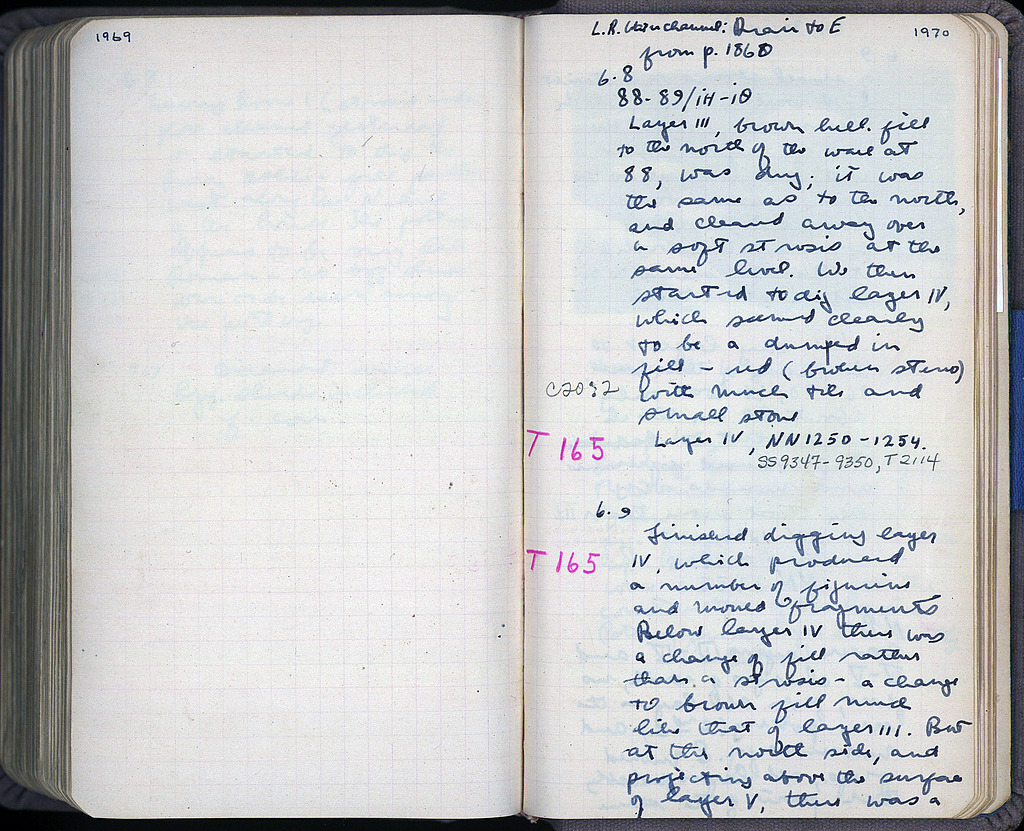 1969
L.R. Water channel: Drain to E
1970
from p. 1868
6.8
88-89/ΙΗ-ΙΘ
Layer III, brown hell. fill
to the north of the wall at
88, was dug; it was
the same as to the north,
and cleaned away over
a soft strosis at the
same level. We then
started to dig layer IV,
which seemed clearly
to be a dumped in
fill - red (broken stereo)
C2032
with much tile and
small stone
T 165
Layer IV, NN1250-1254.
SS9347-9350, T2114
6.9
Finished digging layer
T 165
IV, which produced
a number of figurines
and mould fragments
Below layer IV there was
a change of fill rather
than a strosis - a change
to brown fill much
like that of layer III. But
at the north side, and
projecting above the surface
of layer V, there was a